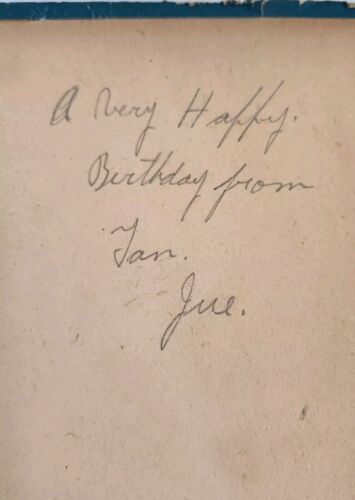 A Very Happy.
Birthday from
Ian.
Jue.